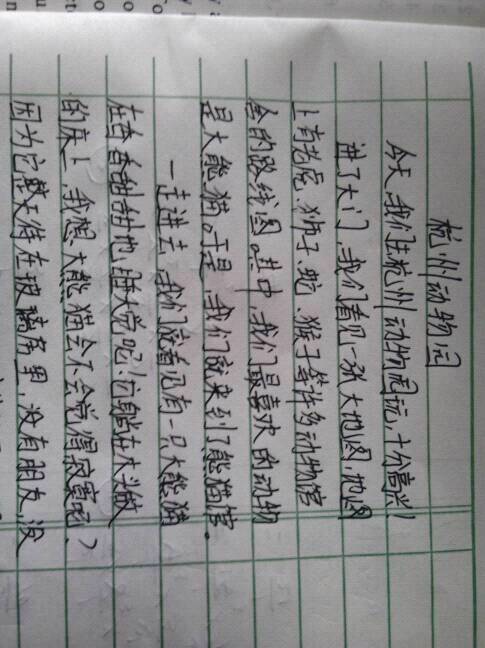 杭州动物园
今天,我们在杭州动物园玩,十分高兴!
进了大门,我们看见一张大地图,地图
上有老虎、狮子、蛇、猴子等许多动物馆
舍的路线图。其中,我们最喜欢的动物
是大熊猫。于是,我们就来到了熊猫馆。
一走进去,我们就看见有一只大熊猫
在香香甜甜地睡大觉呢。它躺在木头做
的床上,我想:大熊猫会不会觉得寂寞呢?
因为它整天待在玻璃房里,没有朋友,没